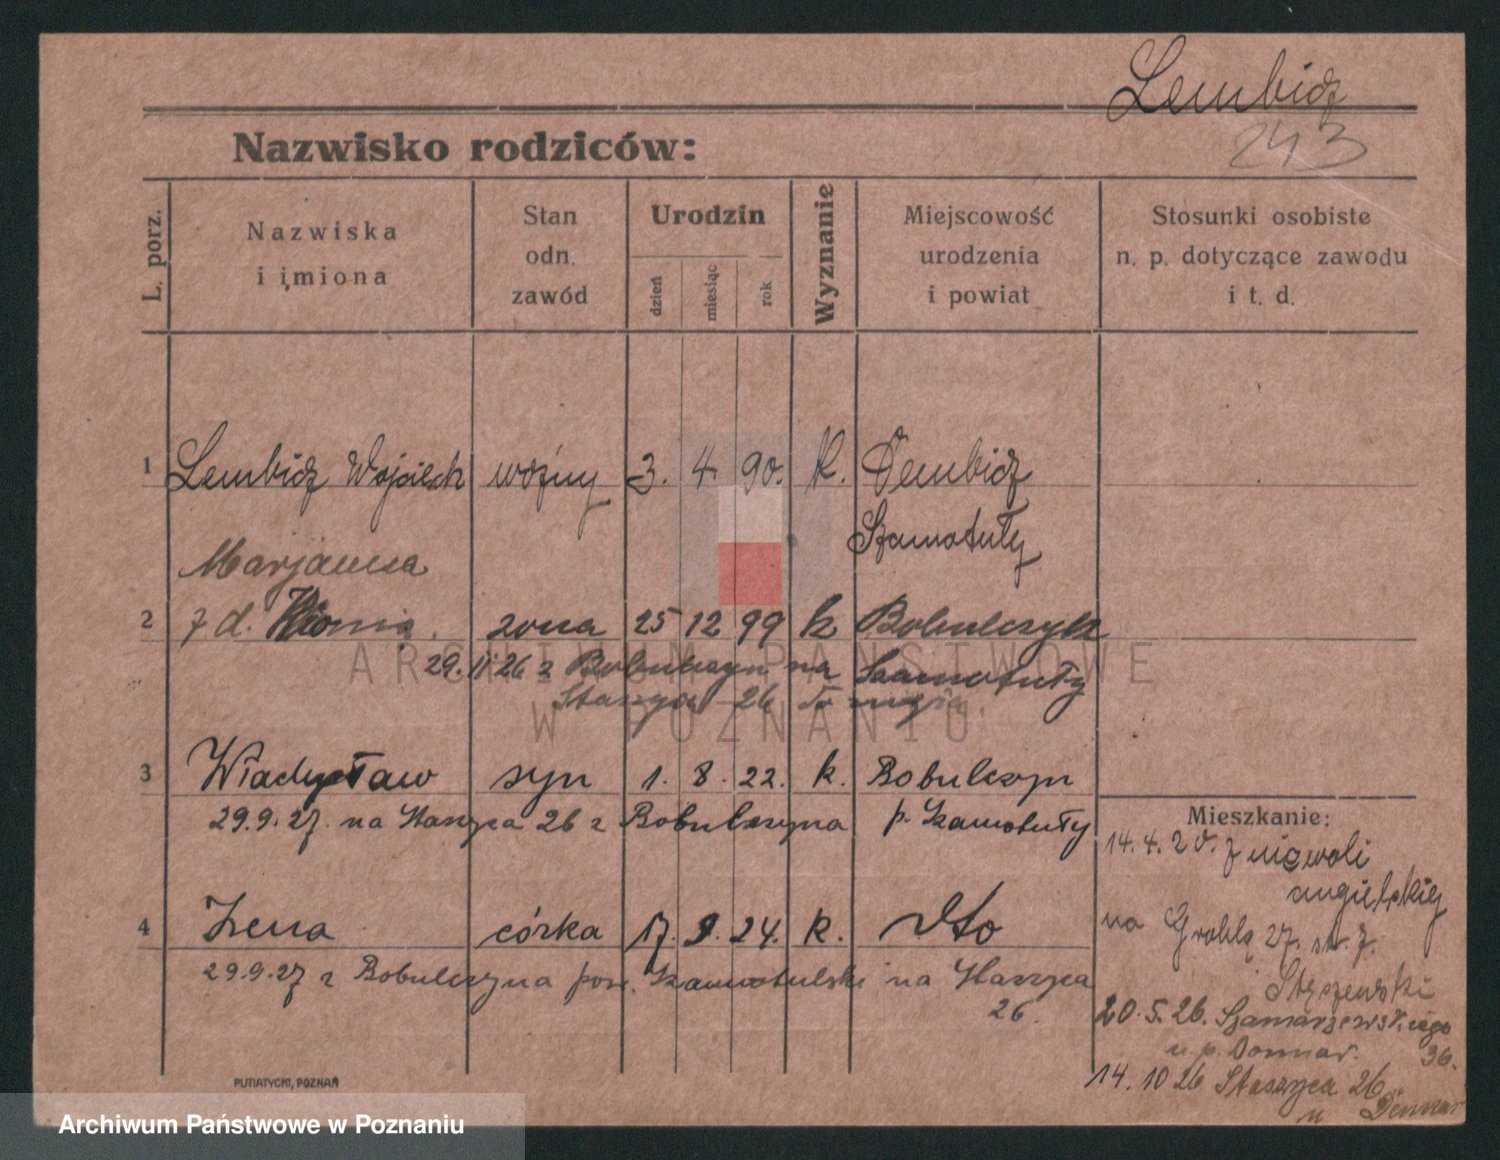 Lembicz
243
Nazwisko rodziców:
L. porz.
Nazwiska
i imiona
Stan
odn.
zawód
Urodzin
dzień
miesiąc
rok
Wyznanie
Miejscowość
urodzenia
i powiat
Stosunki osobiste
n. p. dotyczące zawodu
i t. d.
1 Lembicz Wojciech woźny 3. 4. 90. k. Dembicz
Szamotuły
Marjanna
2 z d. żona 25 12 99 k Bobulczyk
29.11.26 z Bobulczyn na Szamotuły
Staszyca 26 do męża
3 Władysław syn 1. 8. 22. k. Bobulczyn
29.9.27. na Staszyca 26 z Bobulczyna p. Szamotuły
Mieszkanie:
14. 4. 20. z niewoli
angielskiej
na Groblę 27. st. z.
4 Irena córka 17. 9. 24. k. dto
29.9.27 z Bobulczyna pow. Szamotulski na Staszyca
26.
20. 5. 26. Szamarzewskiego
36.
14. 10 26 Staszyca 26
u
PUTIATYCKI, POZNAŃ
ARCHIWUM PAŃSTWOWE
W POZNANIU
Archiwum Państwowe w Poznaniu